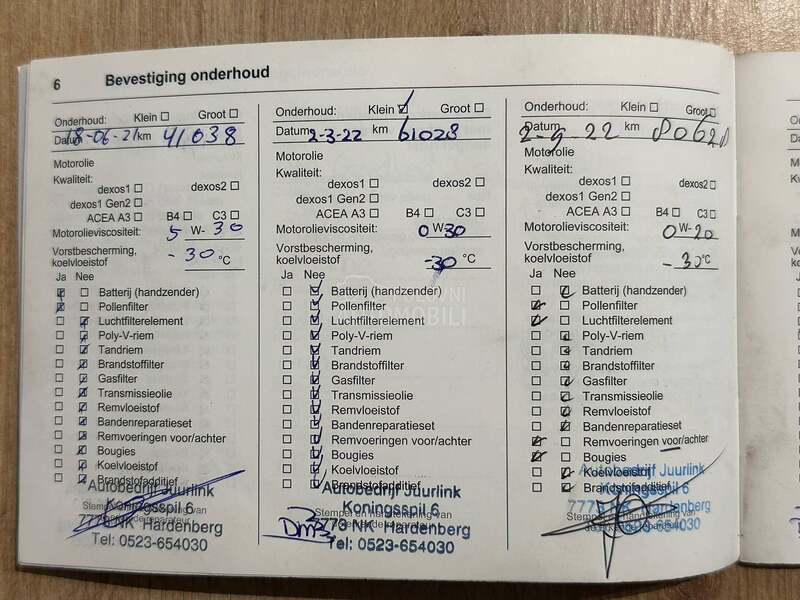 6 Bevestiging onderhoud
Onderhoud: Klein Groot
Datum 18-06-21 km 41038
Motorolie
Kwaliteit:
dexos1 dexos2
dexos1 Gen2
ACEA A3 B4 C3
Motorolieviscositeit: 5 W- 30
Vorstbescherming,
koelvloeistof - 30 °C
Ja Nee
Batterij (handzender)
Pollenfilter
Luchtfilterelement
Poly-V-riem
Tandriem
Brandstoffilter
Gasfilter
Transmissieolie
Remvloeistof
Bandenreparatieset
Remvoeringen voor/achter
Bougies
Koelvloeistof
Brandstofadditief
Autobedrijf Juurlink
Koningsspil 6
7773 NK Hardenberg
Tel: 0523-654030
Onderhoud: Klein Groot
Datum 2-3-22 km 61028
Motorolie
Kwaliteit:
dexos1 dexos2
dexos1 Gen2
ACEA A3 B4 C3
Motorolieviscositeit: 0 W-30
Vorstbescherming,
koelvloeistof -30 °C
Ja Nee
Batterij (handzender)
Pollenfilter
Luchtfilterelement
Poly-V-riem
Tandriem
Brandstoffilter
Gasfilter
Transmissieolie
Remvloeistof
Bandenreparatieset
Remvoeringen voor/achter
Bougies
Koelvloeistof
Brandstofadditief
Autobedrijf Juurlink
Koningsspil 6
7773 NK Hardenberg
Tel: 0523-654030
Onderhoud: Klein Groot
Datum 2-9 22 km 80628
Motorolie
Kwaliteit:
dexos1 dexos2
dexos1 Gen2
ACEA A3 B4 C3
Motorolieviscositeit: 0 W-20
Vorstbescherming,
koelvloeistof -30 °C
Ja Nee
Batterij (handzender)
Pollenfilter
Luchtfilterelement
Poly-V-riem
Tandriem
Brandstoffilter
Gasfilter
Transmissieolie
Remvloeistof
Bandenreparatieset
Remvoeringen voor/achter
Bougies
Koelvloeistof
Brandstofadditief
Autobedrijf Juurlink
Koningsspil 6
7773 NK Hardenberg